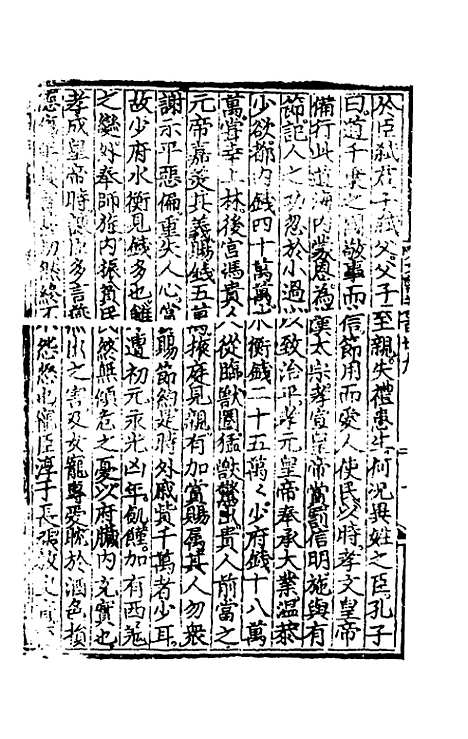 於臣弑君子弑父父子至親失禮患生何況異姓之臣孔子
曰道千乘之國敬事而信節用而愛人使民以時孝文皇帝
備行此道海内蒙恩為漢太宗孝宣皇帝賞罰信明施與有
節記人之功忽於小過以致治平孝元皇帝奉承大業温恭
少欲都内錢四十萬萬水衡錢二十五萬萬少府錢十八萬
萬嘗幸上林後宫馮貴人從臨獸圈猛獸驚出貴人前當之
元帝嘉美其義賜錢五萬掖庭見親有加賞賜屬其人勿衆
謝示平惡偏重失人心賞賜節約是時外戚貲千萬者少耳
故少府水衡見錢多也雖遭初元永光凶年飢饉加有西羌
之變外奉師旅内振貧民終無傾危之憂以府臧内充實也
孝成皇帝時諫臣多言燕出之害及女寵專愛耽於酒色損
德傷年其言切然終不怨怒也寵臣淳于長張放史